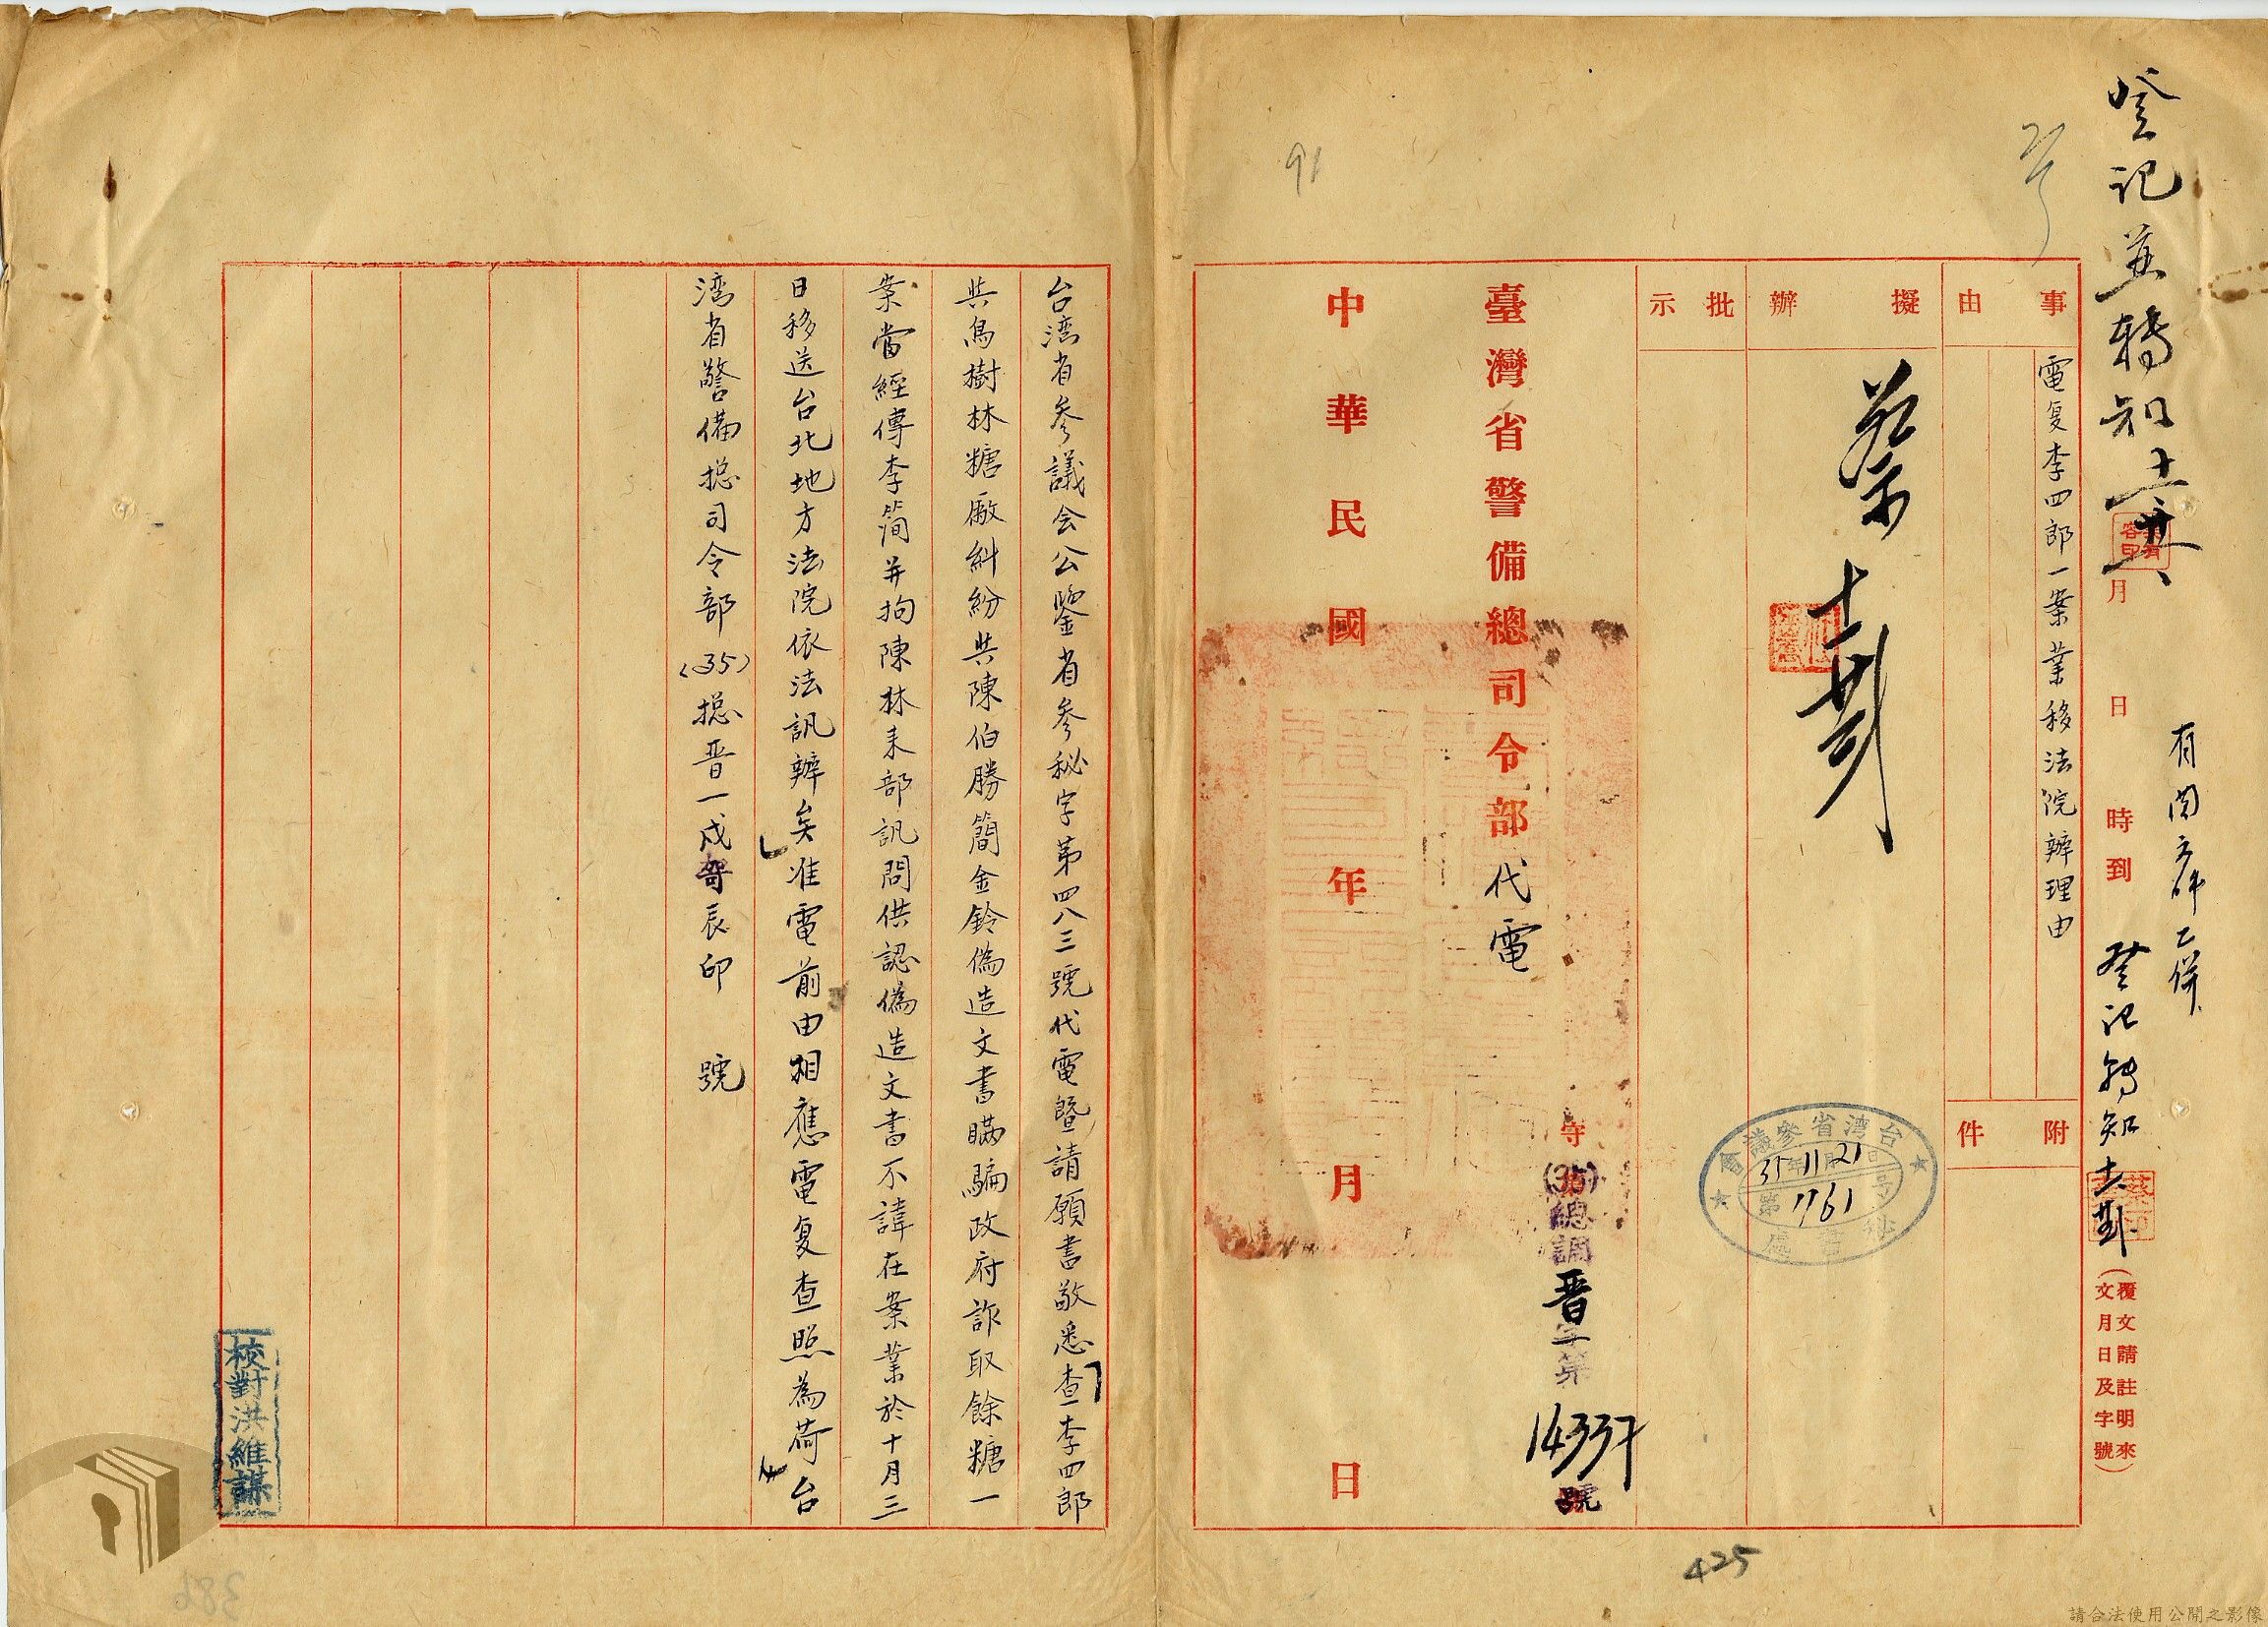 登記並轉知
有關文件已併
登記轉知
月 日 時到
(覆文請註明來文月日及字號)
事由
電复李四郎一案業移法院辦理由
附件
擬辦
蔡
批示
台湾省參議會
35年11月21日
第1761号
秘書處
臺灣省警備總司令部代電
(35)總調晋字第14337號
中華民國 年 月 日
台湾省参議会公鑒省参秘字第四八三號代電暨請願書敬悉查李四郎
與鳥樹林糖廠糾紛與陳伯勝簡金鈴偽造文書瞞騙政府詐取餘糖一
案當經傳李簡并拘陳林未部訊問供認偽造文書不諱在案業於十月三
日移送台北地方法院依法訊辦矣准電前由相應電复查照為荷台
湾省警備总司令部(35)总晋一戍 辰印 號
校對洪維謀
91
425
386
請合法使用公開之影像